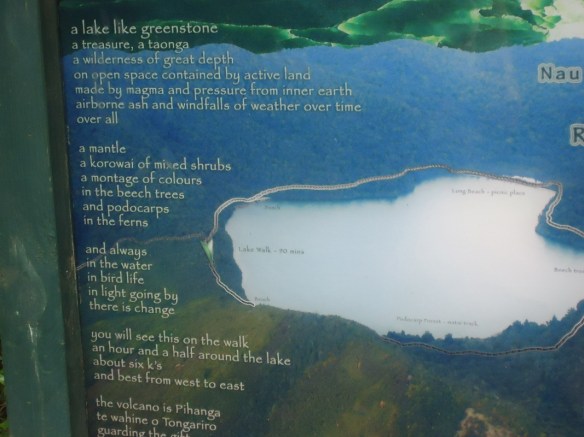 a lake like greenstone
a treasure, a taonga
a wilderness of great depth
on open space contained by active land
made by magma and pressure from inner earth
airborne ash and windfalls of weather over time
over all
a mantle
a korowai of mixed shrubs
a montage of colours
in the beech trees
and podocarps
in the ferns
and always
in the water
in bird life
in light going by
there is change
you will see this on the walk
an hour and a half around the lake
about six k's
and best from west to east
the volcano is Pihanga
te wahine o Tongariro
guarding the gift
Nau
R
Long Beach - picnic place
Lake Walk - 90 mins
Beach